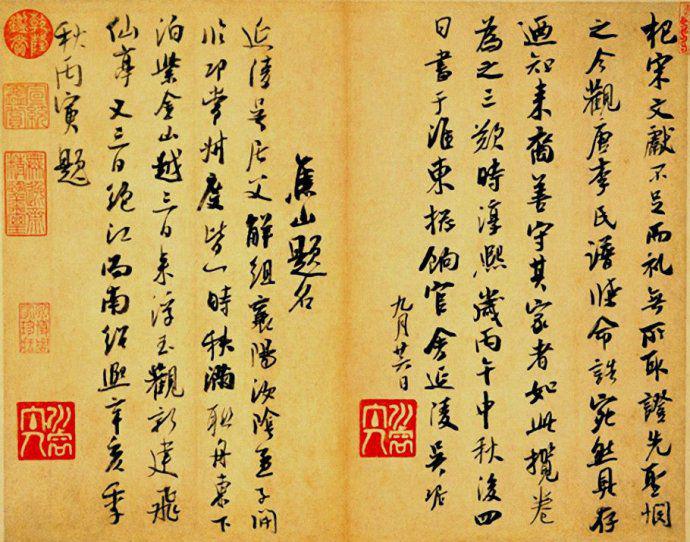 杞宋文獻不足而礼無所取證先聖惘
之今觀唐李氏譜牒命誥宛然具存
廼知来裔善守其家者如此攬卷
為之三歎時淳熙歲丙午中秋後四
日書于淮東摠餉官舍延陵吴琚
九月廿六日
焦山題名
延陵吴居父解組襄陽汝陰孟子開
印常州度皆一時秩滿聯舟東下
泊紫金山越三日来浮玉觀新建飛
仙亭又三日绝江而南紹熙辛亥季
秋丙寅題
乾隆鑑賞